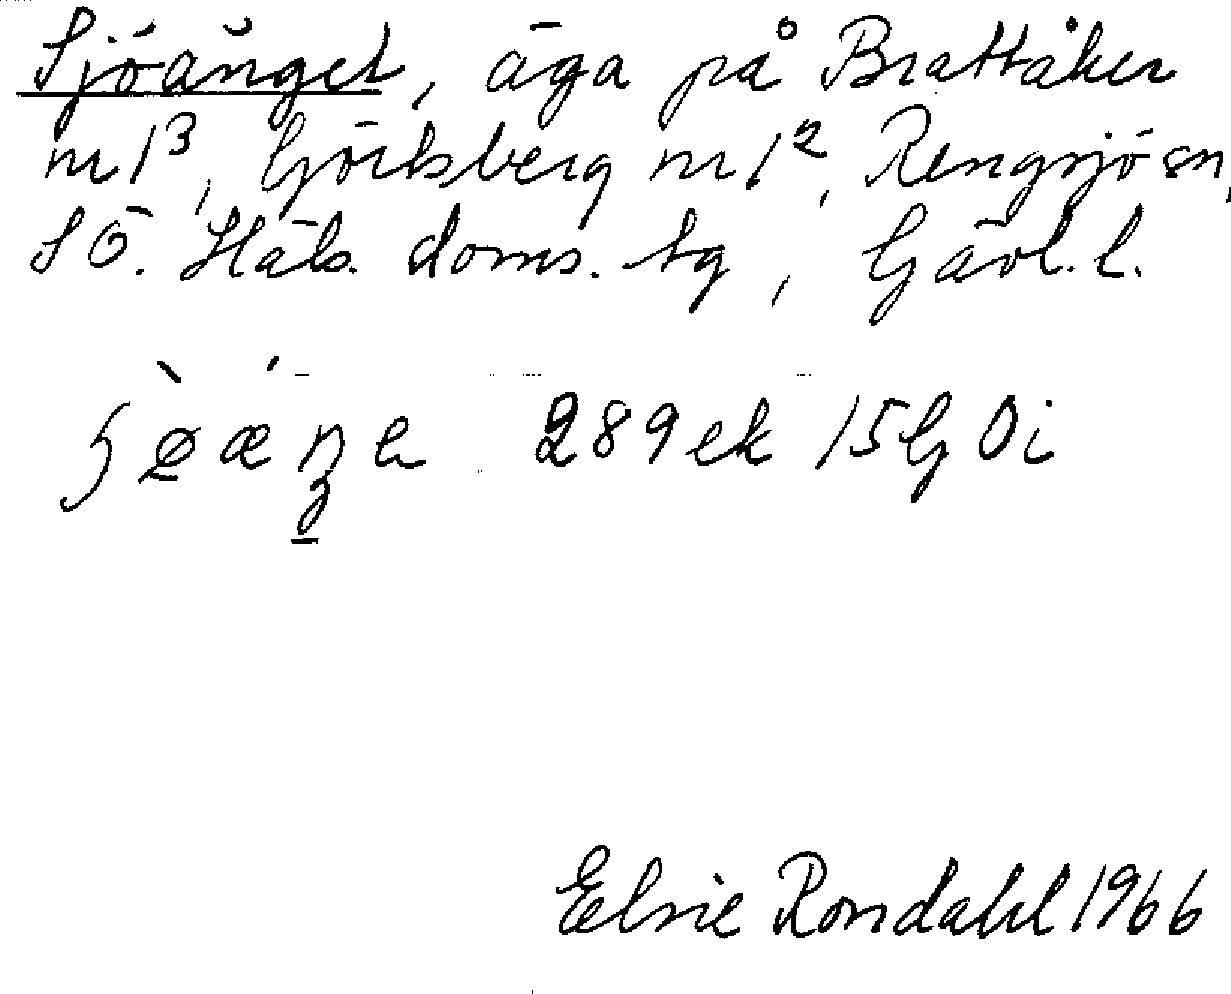 Sjöänget, äga på Brattåker
nr 1³, Görtsberg nr 1², Rengsjö sn,
SÖ. Häls. doms. tg, Gävl. l.
289 ek 15 G Oi
Elsie Rondahl 1966